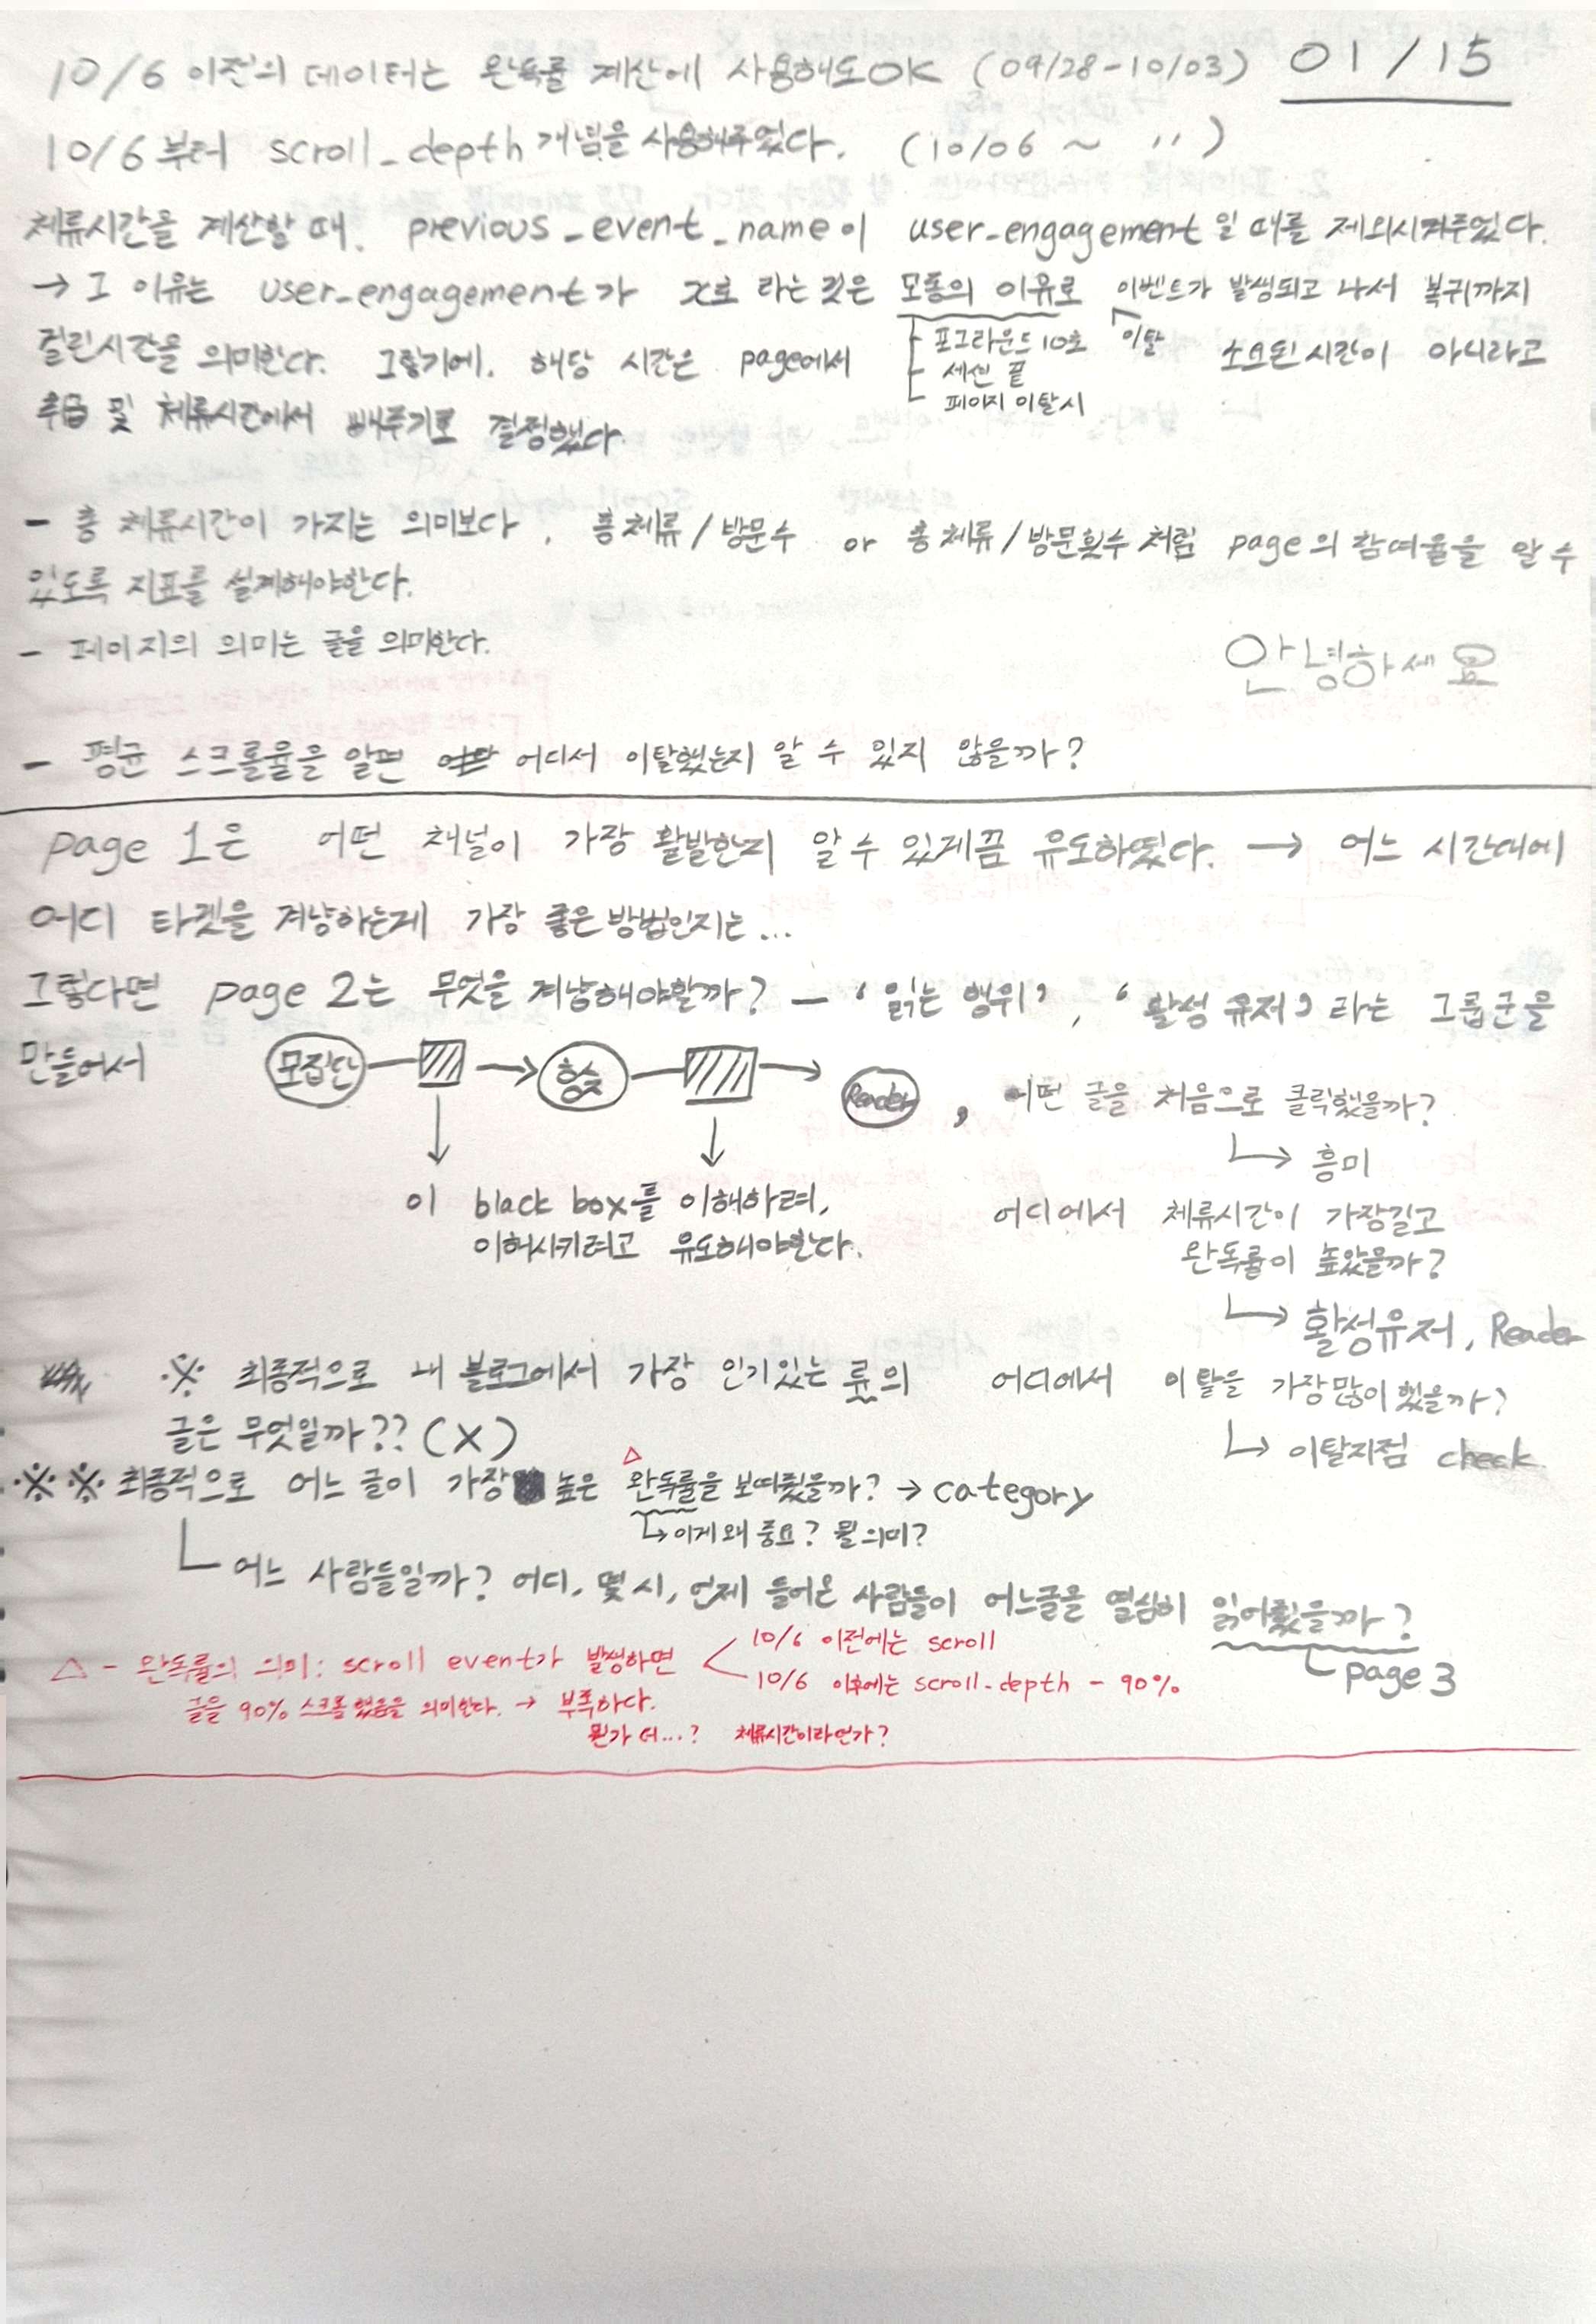 10/6 이전의 데이터는 완독률 계산에 사용해도 OK (09/28-10/03) 01/15
10/6부터 scroll_depth 개념을 사용해주었다. (10/06 ~ 〃)
체류시간을 계산할 때, previous_event_name이 user_engagement일 때를 제외시켜주었다.
→ 그 이유는 user_engagement가 x로 라는 것은 모종의 이유로 이벤트가 발생되고 나서 복귀까지
포그라운드 10초
세션 끝
페이지 이탈시
이탈
걸린시간을 의미한다. 그렇기에, 해당 시간은 page에서 소요된 시간이 아니라고
및 체류시간에서 빼주기로 결정했다.
- 총 체류시간이 가지는 의미보다, 총체류/방문수 or 총체류/방문횟수처럼 page의 참여율을 알 수
있도록 지표를 설계해야한다.
- 페이지의 의미는 글을 의미한다.
안녕하세요
- 평균 스크롤율을 알면 어디서 이탈했는지 알 수 있지 않을까?
page 1은 어떤 채널이 가장 활발한지 알 수 있게끔 유도하였다. → 어느 시간대에
어디 타겟을 겨냥하는게 가장 좋은 방법인지는...
그렇다면 page 2는 무엇을 겨냥해야할까? - '읽는 행위', '활성 유저' 라는 그룹군을
만들어서
모집단 → → Reader, 어떤 글을 처음으로 클릭했을까?
↳ 흥미
이 black box를 이해하려,
이허시키려고 유도해야한다.
어디에서 체류시간이 가장길고
완독률이 높았을까?
↳ 활성유저, Reader
※ 최종적으로 내 블로그에서 가장 인기있는 류의
글은 무엇일까?? (X)
어디에서 이탈을 가장많이 했을까?
↳ 이탈지점 check
※※ 최종적으로 어느 글이 가장 높은 △ 완독률을 보여줬을까? → category
↳ 이게 왜 중요? 뭘 의미?
어느 사람들일까? 어디, 몇 시, 언제 들어온 사람들이 어느글을 열심히 읽어줬을까?
page 3
△ - 완독률의 의미: scroll event가 발생하면
10/6 이전에는 scroll
10/6 이후에는 scroll-depth - 90%
글을 90% 스크롤 했음을 의미한다. → 부족하다.
뭔가 더...? 체류시간이라던가?